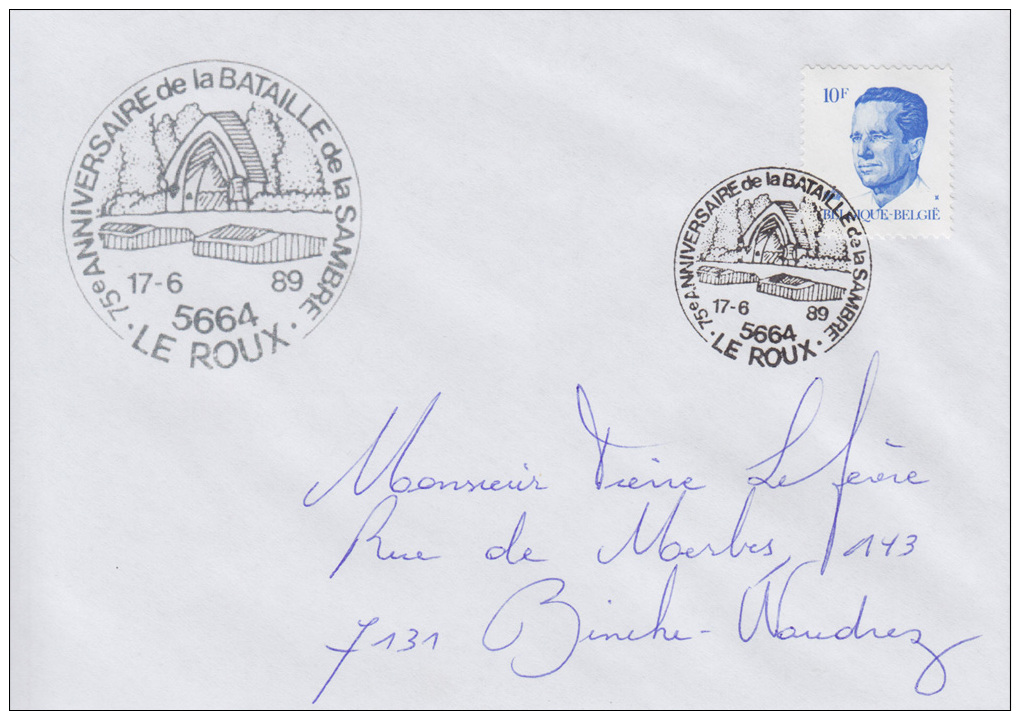 75e ANNIVERSAIRE de la BATAILLE de la SAMBRE
17-6 89
5664
LE ROUX
10F
BELGIQUE-BELGIË
75e ANNIVERSAIRE de la BATAILLE de la SAMBRE
17-6 89
5664
LE ROUX
Monsieur Pierre Lefèvre
Rue de Merbes, 143
7131 Binche-Waudrez